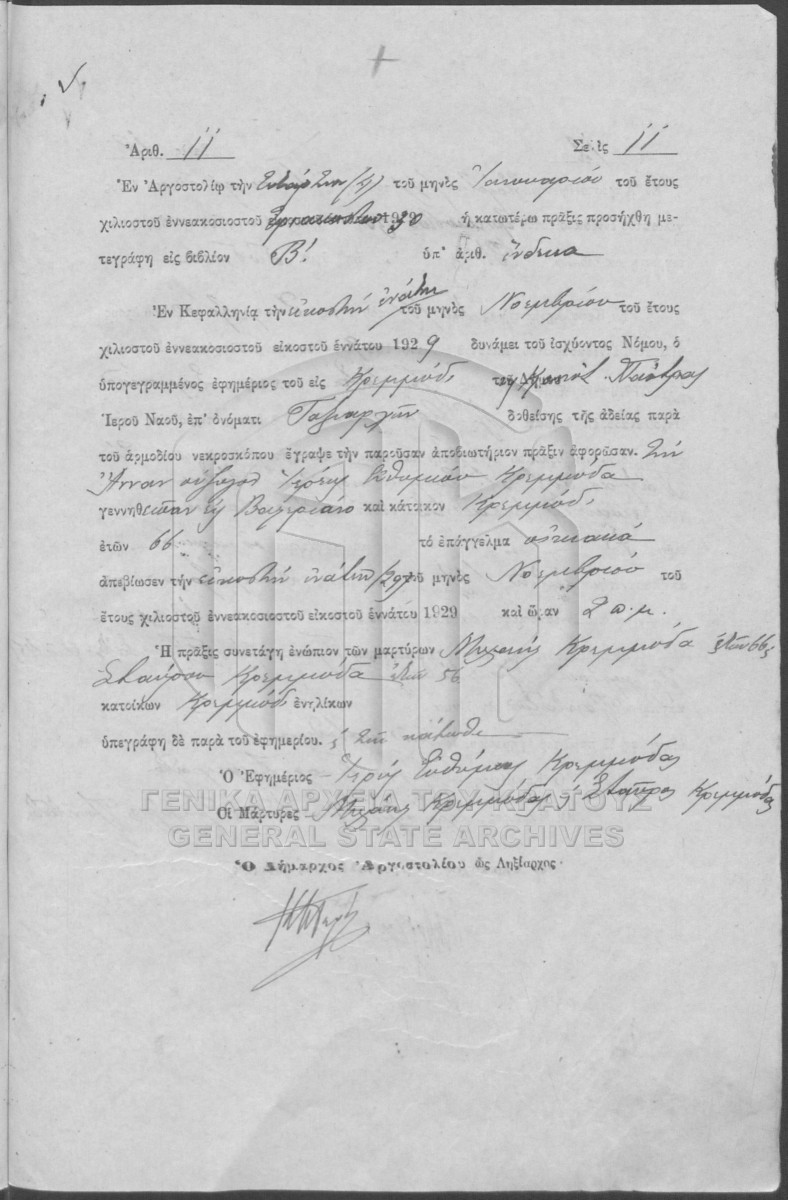 Ἀριθ. 11 Σελὶς 11
Ἐν Ἀργοστολίῳ τὴν τοῦ μηνὸς Ἰανουαρίου τοῦ ἔτους
χιλιοστοῦ ἐννεακοσιοστοῦ 1930 ἡ κατωτέρω πρᾶξις προσήχθη με-
τεγράφη εἰς βιβλίον Β! ὑπ' ἀριθ. ἕνδεκα
Ἐν Κεφαλληνίᾳ τὴν εἰκοστὴν ἐνάτην τοῦ μηνὸς Νοεμβρίου τοῦ ἔτους
χιλιοστοῦ ἐννεακοσιοστοῦ εἰκοστοῦ ἐννάτου 1929 δυνάμει τοῦ ἰσχύοντος Νόμου, ὁ
ὑπογεγραμμένος ἐφημέριος τοῦ εἰς Κρεμμύδι
Ἱεροῦ Ναοῦ, ἐπ' ὀνόματι Ταξιαρχῶν δοθείσης τῆς ἀδείας παρὰ
τοῦ ἁρμοδίου νεκροσκόπου ἔγραψε τὴν παροῦσαν ἀποβιωτήριον πρᾶξιν ἀφορῶσαν. Τὴν
Ἄνναν σύζυγον Ἱερέως Εὐθυμίου Κρεμμύδα
γεννηθεῖσαν εἰς καὶ κάτοικον Κρεμμύδι
ἐτῶν 66 τὸ ἐπάγγελμα οἰκιακά
ἀπεβίωσεν τὴν εἰκοστὴν ἐνάτην (29) τοῦ μηνὸς Νοεμβρίου τοῦ
ἔτους χιλιοστοῦ ἐννεακοσιοστοῦ εἰκοστοῦ ἐννάτου 1929 καὶ ὥραν 2 π.μ.
Ἡ πρᾶξις συνετάγη ἐνώπιον τῶν μαρτύρων Κρεμμύδα ἐτῶν 66 ς
Σταύρου Κρεμμύδα ἐτῶν 56
κατοίκων Κρεμμύδι ἐνηλίκων
ὑπεγράφη δὲ παρὰ τοῦ ἐφημερίου. ς τῶν κάτωθι
Ὁ Ἐφημέριος Ἱερεὺς Εὐθύμιος Κρεμμύδας
ΓΕΝΙΚΑ ΑΡΧΕΙΑ ΤΟΥ ΚΡΑΤΟΥΣ
Οἱ Μάρτυρες Κρεμμύδας ς Σταῦρος Κρεμμύδας
GENERAL STATE ARCHIVES
Ὁ Δήμαρχος Ἀργοστολίου ὡς Ληξίαρχος